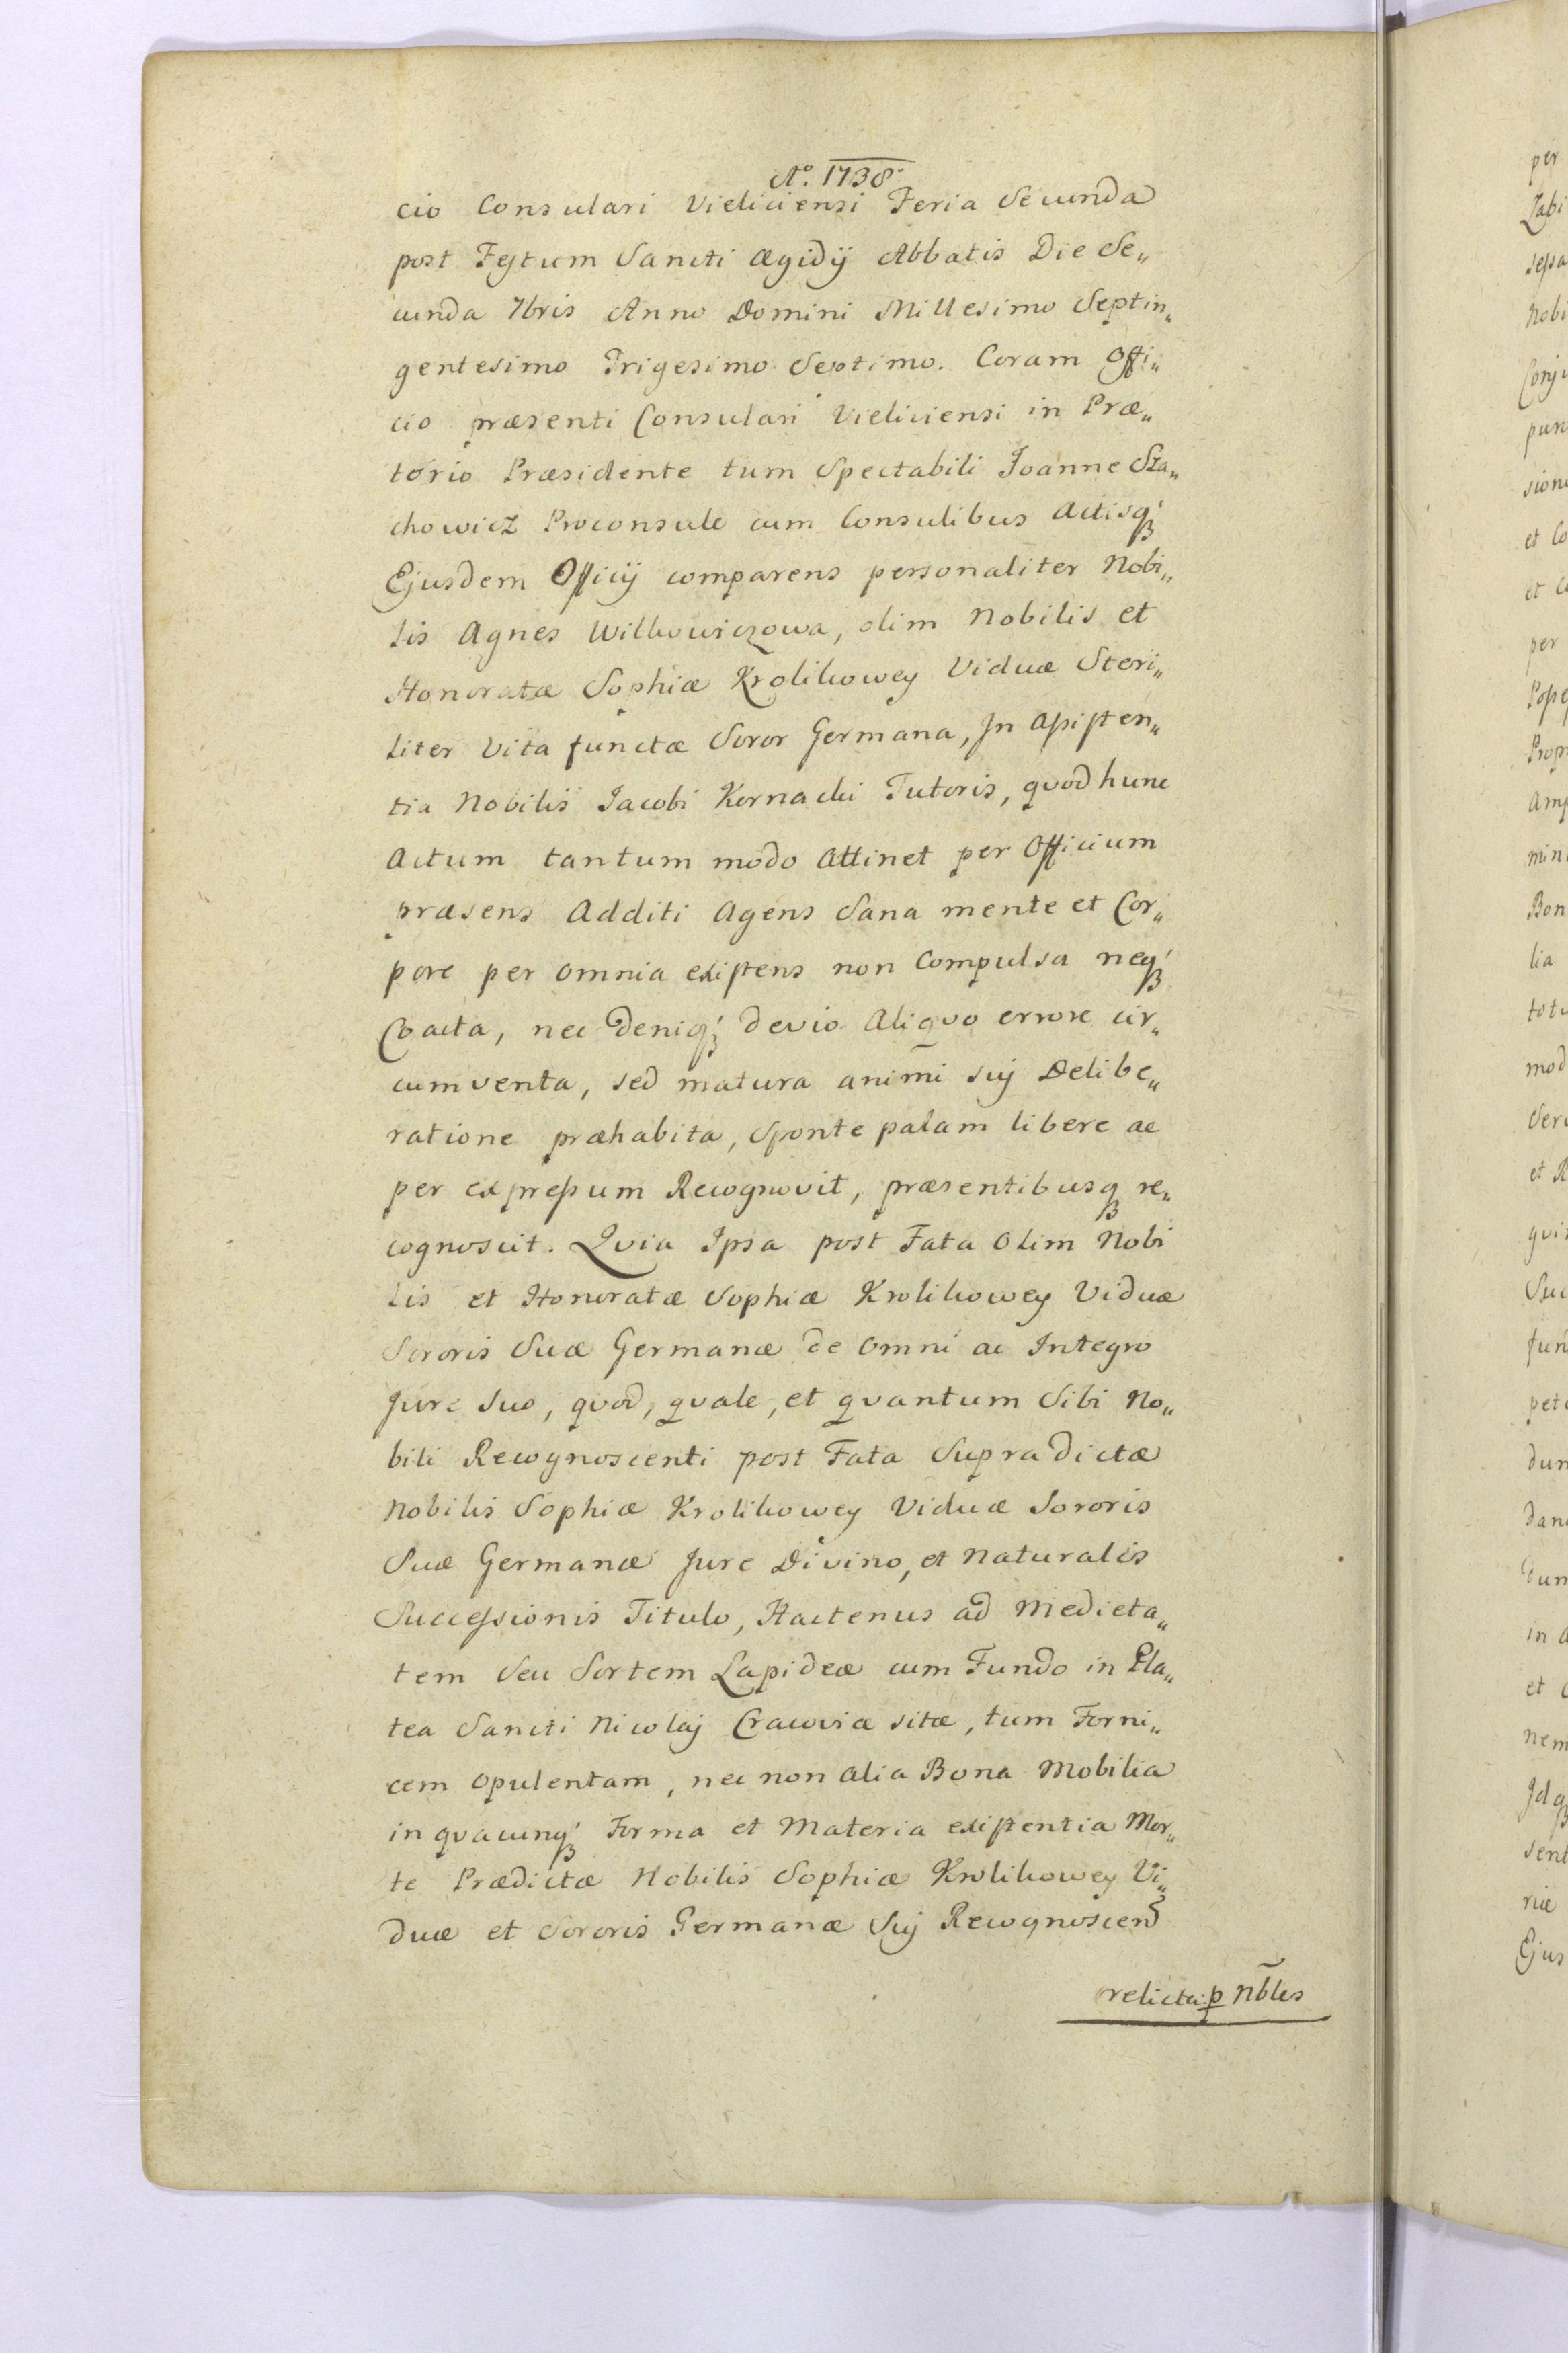 Aº. 1738.
cio Consulari Vieliciensi Feria Secunda
post Festum Sancti Ægidij Abbatis Die Se„
cunda 7bris Anno Domini Millesimo Septin„
gentesimo Trigesimo Septimo. Coram Offi„
cio præsenti Consulari Vieliciensi in Præ„
torio Præsidente tum Spectabili Joanne Sta„
chowicz Proconsule cum Consulibus Actisq́;
Ejusdem Officij comparens personaliter Nobi„
lis Agnes Wilkowiczowa, olim Nobilis et
Honoratæ Sophiæ Krolikowey Viduæ Steri„
liter Vita functæ Soror Germana, In Assisten„
tia Nobilis Jacobi Kornacki Tutoris, quod hunc
Actum tantum modo Attinet per Officium
præsens Additi Agens Sana mente et Cor„
pore per omnia existens non Compulsa neq́;
Coacta, nec deniq́; devio Aliquo errore cir„
cumventa, sed matura animi sui Delibe„
ratione præhabita, Sponte palam libere ac
per expressum Recognovit, præsentibusq; re„
cognoscit. Quia Ipsa post Fata Olim Nobi
lis et Honoratæ Sophiæ Krolikowey Viduæ
Sororis Suæ Germanæ de Omni ac Integro
Jure Suo, quod, quale, et quantum Sibi No„
bili Recognoscenti post Fata Supra dictæ
Nobilis Sophiæ Krolikowey Viduæ Sororis
Suæ Germanæ Jure Divino, et Naturalis
Successionis Titulo, Hactenus ad Medieta„
tem Seu Sortem Lapideæ cum Fundo in Pla„
tea Sancti Nicolaj Cracoviæ sitæ, tum Forni„
cem opulentam, nec non alia Bona Mobilia
in quacunq́; Forma et Materia existentia Mor„
te Prædictæ Nobilis Sophiæ Krolikowey Vi„
duæ et Sororis Germanæ Sui Recognoscen
relicta: p Nbles
per
Zabi
sessa
Nobi
Conju
pun
sion
et Co
per
Prop
Amp
min
Bon
lia
totu
mod
et R
qui
Suc
pet
dum
in
et
nem
Idq;
sent
riæ
Ejus